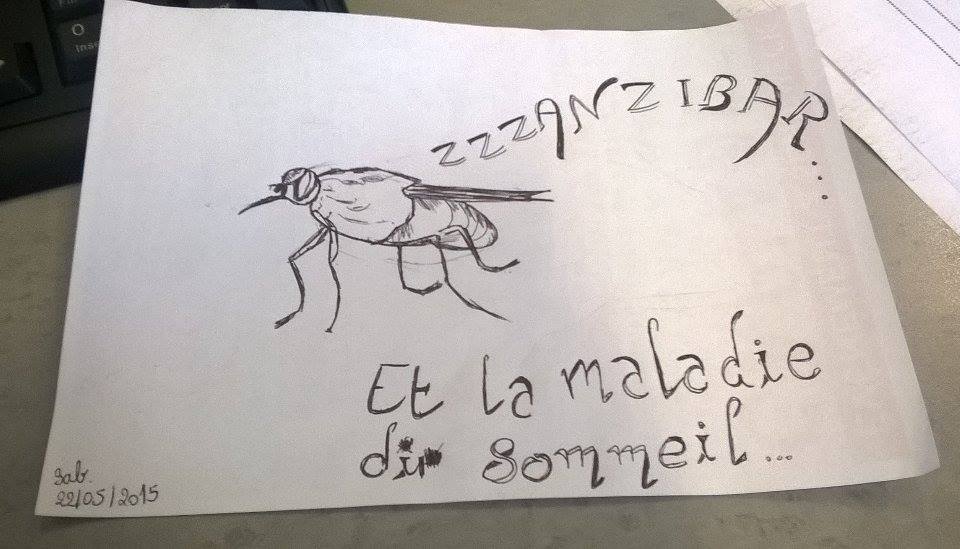 O
Inse
ZZZANZIBAR...
Et la maladie
du sommeil...
Sab.
22/05/2015